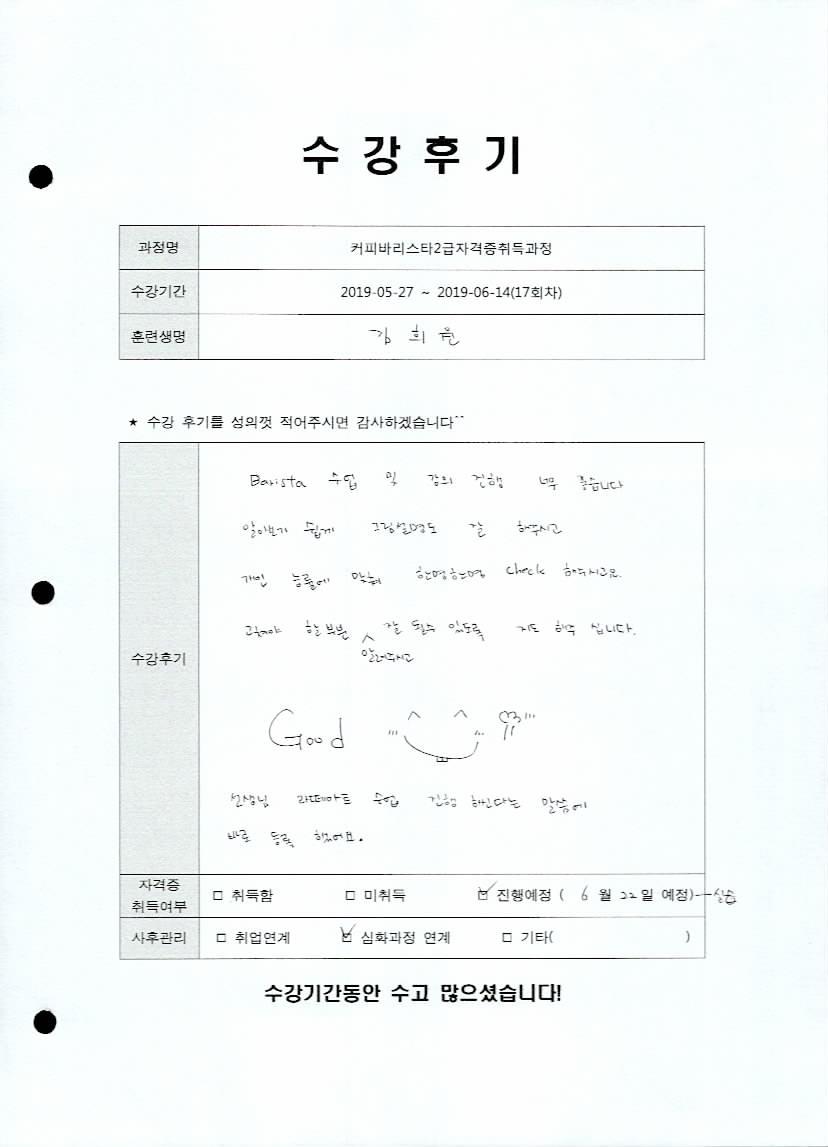 수 강 후 기
과정명 커피바리스타2급자격증취득과정
수강기간 2019-05-27 ~ 2019-06-14(17회차)
훈련생명 김 희 원
★ 수강 후기를 성의껏 적어주시면 감사하겠습니다^^
수강후기
Barista 수업 및 강의 진행 너무 좋습니다
알아보기 쉽게 그림설명도 잘 해주시고
개인 능률에 맞춰 한명한명 check 해주시고요.
고쳐야 할 부분 잘 될수 있도록 지도 해주 십니다.
알려주시고
Good
선생님 라떼아트 수업 진행 하신다는 말씀에
바로 등록 했어요.
자격증 취득여부 □ 취득함 □ 미취득 ☑ 진행예정 ( 6 월 22 일 예정) 실습
사후관리 □ 취업연계 ☑ 심화과정 연계 □ 기타( )
수강기간동안 수고 많으셨습니다!